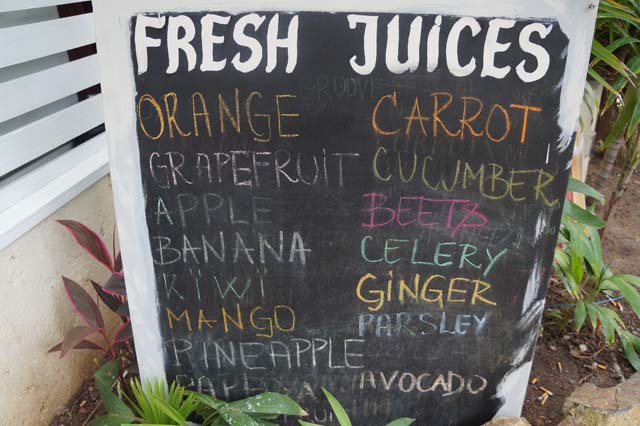 FRESH JUICES
ORANGE
GRAPEFRUIT
APPLE
BANANA
KIWI
MANGO
PINEAPPLE
PAPAYA
CARROT
CUCUMBER
BEETS
CELERY
GINGER
PARSLEY
AVOCADO